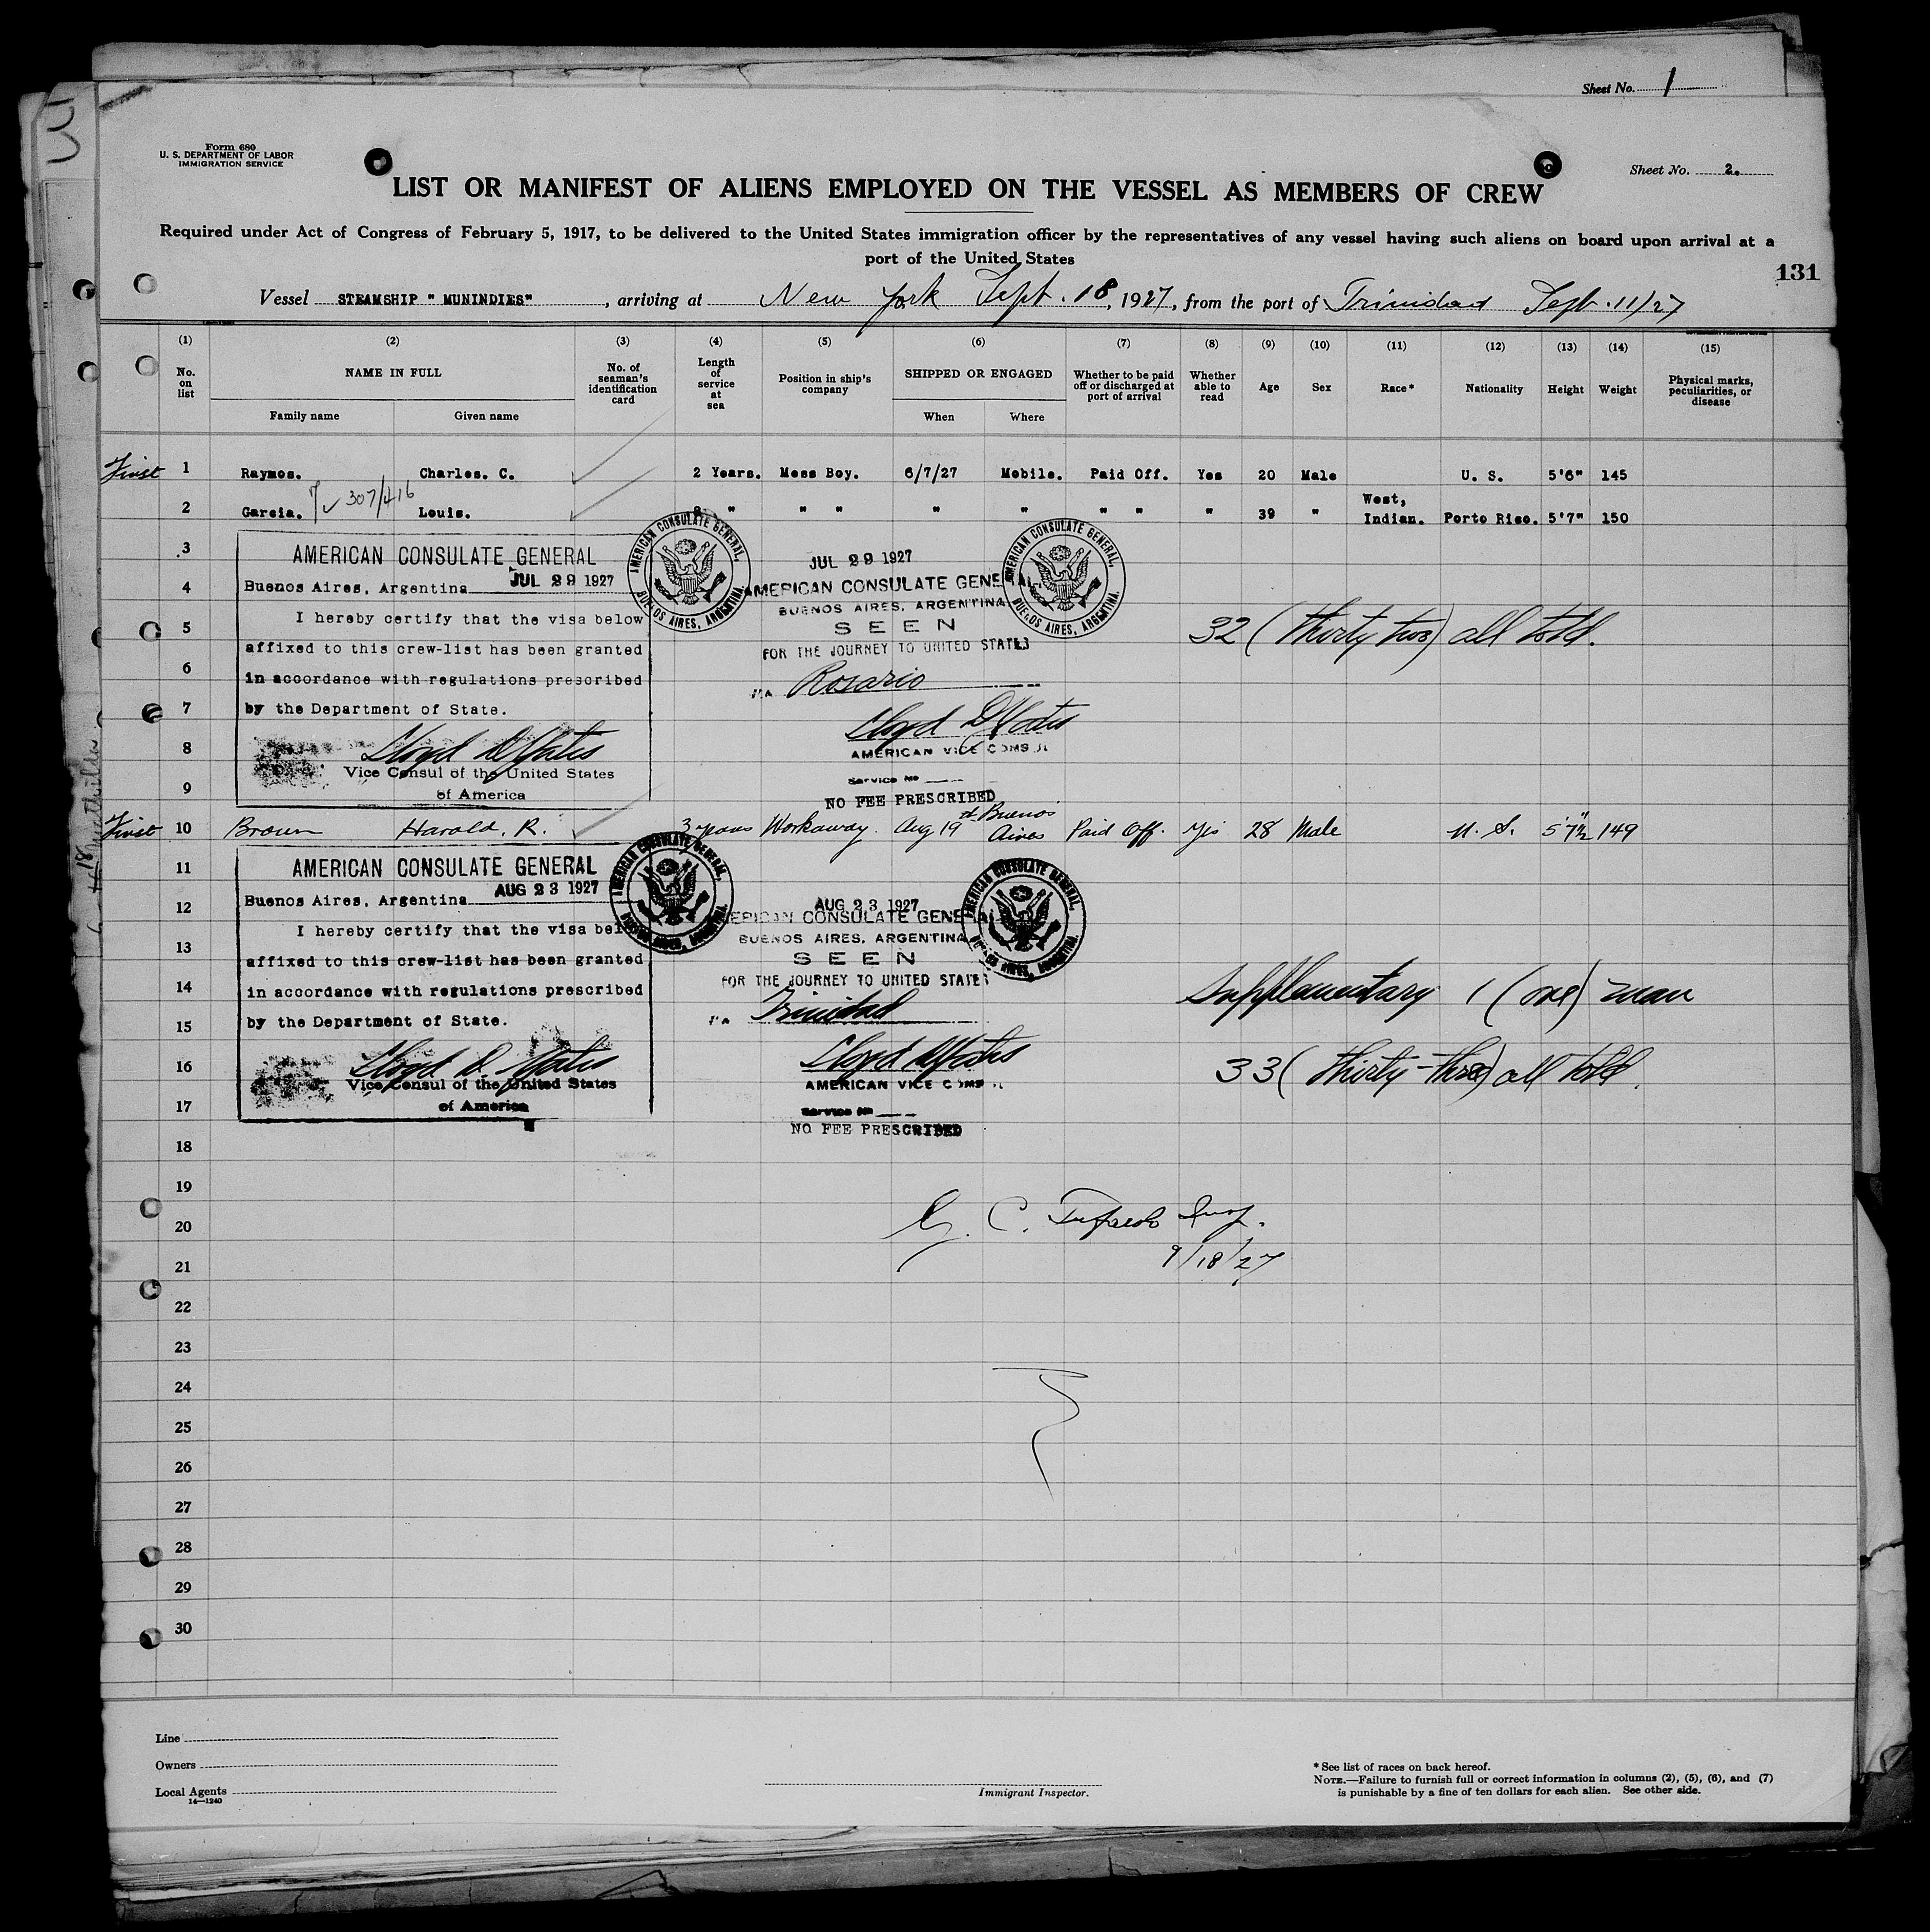 Sheet No. 1
Form 680
U. S. DEPARTMENT OF LABOR
IMMIGRATION SERVICE
Sheet No. 2.
LIST OR MANIFEST OF ALIENS EMPLOYED ON THE VESSEL AS MEMBERS OF CREW
Required under Act of Congress of February 5, 1917, to be delivered to the United States immigration officer by the representatives of any vessel having such aliens on board upon arrival at a
port of the United States
131
Vessel STEAMSHIP " MUNINDIES" , arriving at New York Sept. 18, 1927, from the port of Trinidad Sept. 11/27
(1) (2) (3) (4) (5) (6) (7) (8) (9) (10) (11) (12) (13) (14) (15)
No. on list NAME IN FULL Family name Given name No. of seaman's identification card Length of service at sea Position in ship's company SHIPPED OR ENGAGED When Where Whether to be paid off or discharged at port of arrival Whether able to read Age Sex Race* Nationality Height Weight Physical marks, peculiarities, or disease
First 1 Raymos. Charles. C. 2 Years. Mess Boy. 6/7/27 Mobile. Paid Off. Yes 20 Male U. S. 5'6" 145
2 Garcia. 307/416 Louis. " " " " " " " " 39 " West, Indian. Porto Rico. 5'7" 150
3
4
5
6
7
8
9
AMERICAN CONSULATE GENERAL
Buenos Aires, Argentina JUL 29 1927
I hereby certify that the visa below
affixed to this crew-list has been granted
in accordance with regulations prescribed
by the Department of State.
Lloyd D Yates
Vice Consul of the United States
of America
AMERICAN CONSULATE GENERAL, BUENOS AIRES, ARGENTINA.
JUL 29 1927
AMERICAN CONSULATE GENERAL
BUENOS AIRES, ARGENTINA
SEEN
FOR THE JOURNEY TO UNITED STATES
Via Rosario
Lloyd D Yates
AMERICAN VICE CONSUL
Service No
NO FEE PRESCRIBED
AMERICAN CONSULATE GENERAL, BUENOS AIRES, ARGENTINA.
32 (thirty two) all told.
First 10 Brown Harold, R. 3 years Workaway. Aug 19th Buenos Aires Paid Off. Yes 28 Male U. S. 5'7½" 149
11
12
13
14
15
16
17
AMERICAN CONSULATE GENERAL
Buenos Aires, Argentina AUG 23 1927
I hereby certify that the visa below
affixed to this crew-list has been granted
in accordance with regulations prescribed
by the Department of State.
Lloyd D. Yates
Vice Consul of the United States
of America
AMERICAN CONSULATE GENERAL, BUENOS AIRES, ARGENTINA.
AUG 23 1927
AMERICAN CONSULATE GENERAL
BUENOS AIRES, ARGENTINA
SEEN
FOR THE JOURNEY TO UNITED STATES
Via Trinidad
Lloyd D Yates
AMERICAN VICE CONSUL
Service No
NO FEE PRESCRIBED
AMERICAN CONSULATE GENERAL, BUENOS AIRES, ARGENTINA.
Supplementary 1 (one) man
33 (thirty-three) all told.
18
19
20
G. C. Insp.
9/18/27
21
22
23
24
25
26
27
28
29
30
Line
Owners
Local Agents
14—1240
Immigrant Inspector.
* See list of races on back hereof.
NOTE.—Failure to furnish full or correct information in columns (2), (5), (6), and (7)
is punishable by a fine of ten dollars for each alien. See other side.